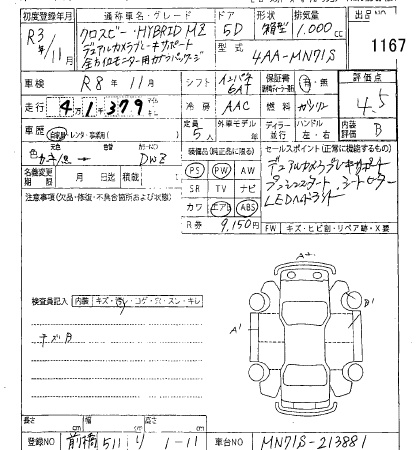 初度登録年月 通称車名・グレード ドア 形状 排気量 出品NO
R3年/11月 クロスビー・HYBRID MZ 5D 箱型 1.000cc 1167
デュアルカメラブレーキサポート 型式 4AA-MN71S
全方位モニター用カメラパッケージ
車検 R8年11月 シフト インパネ6AT 保証書 有・無 評価点
走行 41,379 冷房 AAC 燃料 ガソリン 4.5
車歴 自家用・レンタ・ 定員 5人 外車モデル年 ディーラー 並行 ハンドル 左・右 内装評価 B
色 元色 カラーNO DWZ 装備品(純正品に限る) セールスポイント(正常に機能するもの)
名義変更期限 月 日迄 積載 PS PW AW デュアルカメラブレーキサポート
注意事項(欠品・修復・不具合箇所および状態) SR TV ナビ プッシュスタート、シートヒーター
カワ エアB ABS LEDヘッドライト
R券 9,150円 FW キズ・ヒビ割・リペア跡・X要
検査員記入 内装 キズ・汚・コゲ・穴・スン・キレ
チズ有
A'
A'
B'
長さ cm 幅 cm 高さ cm
登録NO 前橋 511 り 1-11 車台NO MN71S-213881